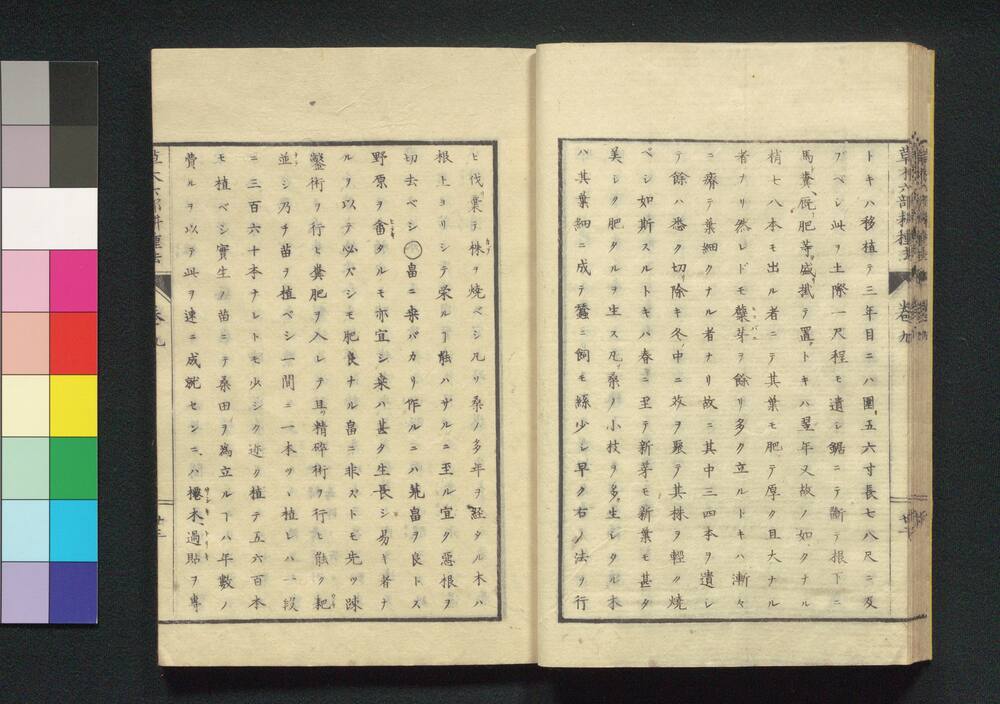 トキハ移植テ三年目ニハ圍五六寸長七八尺ニ及
フベシ此ヲ土際一尺程モ遺シ鋸ニテ斷テ根下ニ
馬糞、厩肥等盛掛テ置トキハ翌年又故ノ如クナル
梢七八本モ出ル者ニテ其葉モ肥テ厚ク且大ナル
者ナリ然レドモ蘖芽ヲ餘リ多ク立ルトキハ漸々
ニ瘠テ葉細クナル者ナリ故ニ其中三四本ヲ遺シ
テ餘ハ悉ク切除キ冬中ニ苅ヲ聚テ其株ヲ輕ク燒
ベシ如斯スルトキハ春ニ至テ新芽モ新葉モ甚タ
美シク肥タルヲ生ス凡ソ桑ノ小枝ヲ多生シタル木
ハ其葉細ニ成テ蠶ニ飼モ絲少シ早ク右ノ法ヲ行
ヒ伐葉テ株ヲ燒ベシ凡ソ桑ノ多年ヲ経タル木ハ
根上ヨリシテ栄ルヿ能ハザルニ至ル宜ク悪根ヲ
切去ベシ○畠ニ桒バカリ作ルニハ荒畠ヲ良トス
野原ヲ畬タルモ亦宜シ桒ハ甚タ生長シ易キ者ナ
ルヲ以テ必スシモ肥良ナル畠ニ非ストモ先ツ踈
鑿術ヲ行ヒ糞肥ヲ入レテ且ツ精碎術ヲ行ヒ能ク耙
並シ乃チ苗ヲ植ベシ一間ニ一本ツヽ植レハ一段
ニ三百六十本ナレトモ少シク近ク植テ五六百本
モ植ベシ實生ノ苗ニテ桑田ヲ為立ルヿハ年數ノ
費ルヲ以テ此ヲ速ニ成就センニハ、樁木、過貼ヲ專